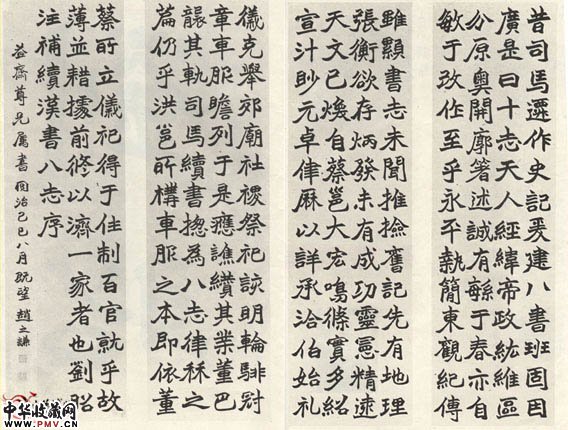 昔司馬遷作史記爰建八書班固因
廣是曰十志天人經緯帝政紘維區
分原奧開廓箸述誠有緐于春亦自
敏于改作至乎永平執簡東觀紀傳
雖顯書志未聞推撿舊記先有地理
張衡欲存炳發未有成功靈憲精遠
天文已煥自蔡邕大宏鳴條實多紹
宣汁眇元卓律厤以詳承洽伯始礼
儀克舉郊廟社稷祭祀該明輪騑冠
章車服贍列于是應譙纘其業董巴
襲其軌司馬續書揔為八志律秝之
篇仍乎洪邕所構車服之本即依董
蔡所立儀祀得于往制百官就乎故
薄並耤據前修以濟一家者也劉昭
注補續漢書八志序
益齋尊兄屬書 同治己巳八月既望 趙之謙
中华收藏网
www.PMV.cn